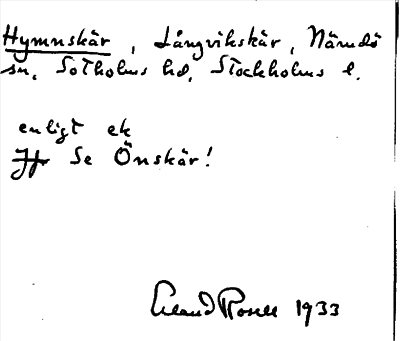 Hymnskär, Långvikskär, Nämdö
sn, Sotholms hd, Stockholms l.
enligt ek
Jfr Se Önskär!
Erland Rosell 1933